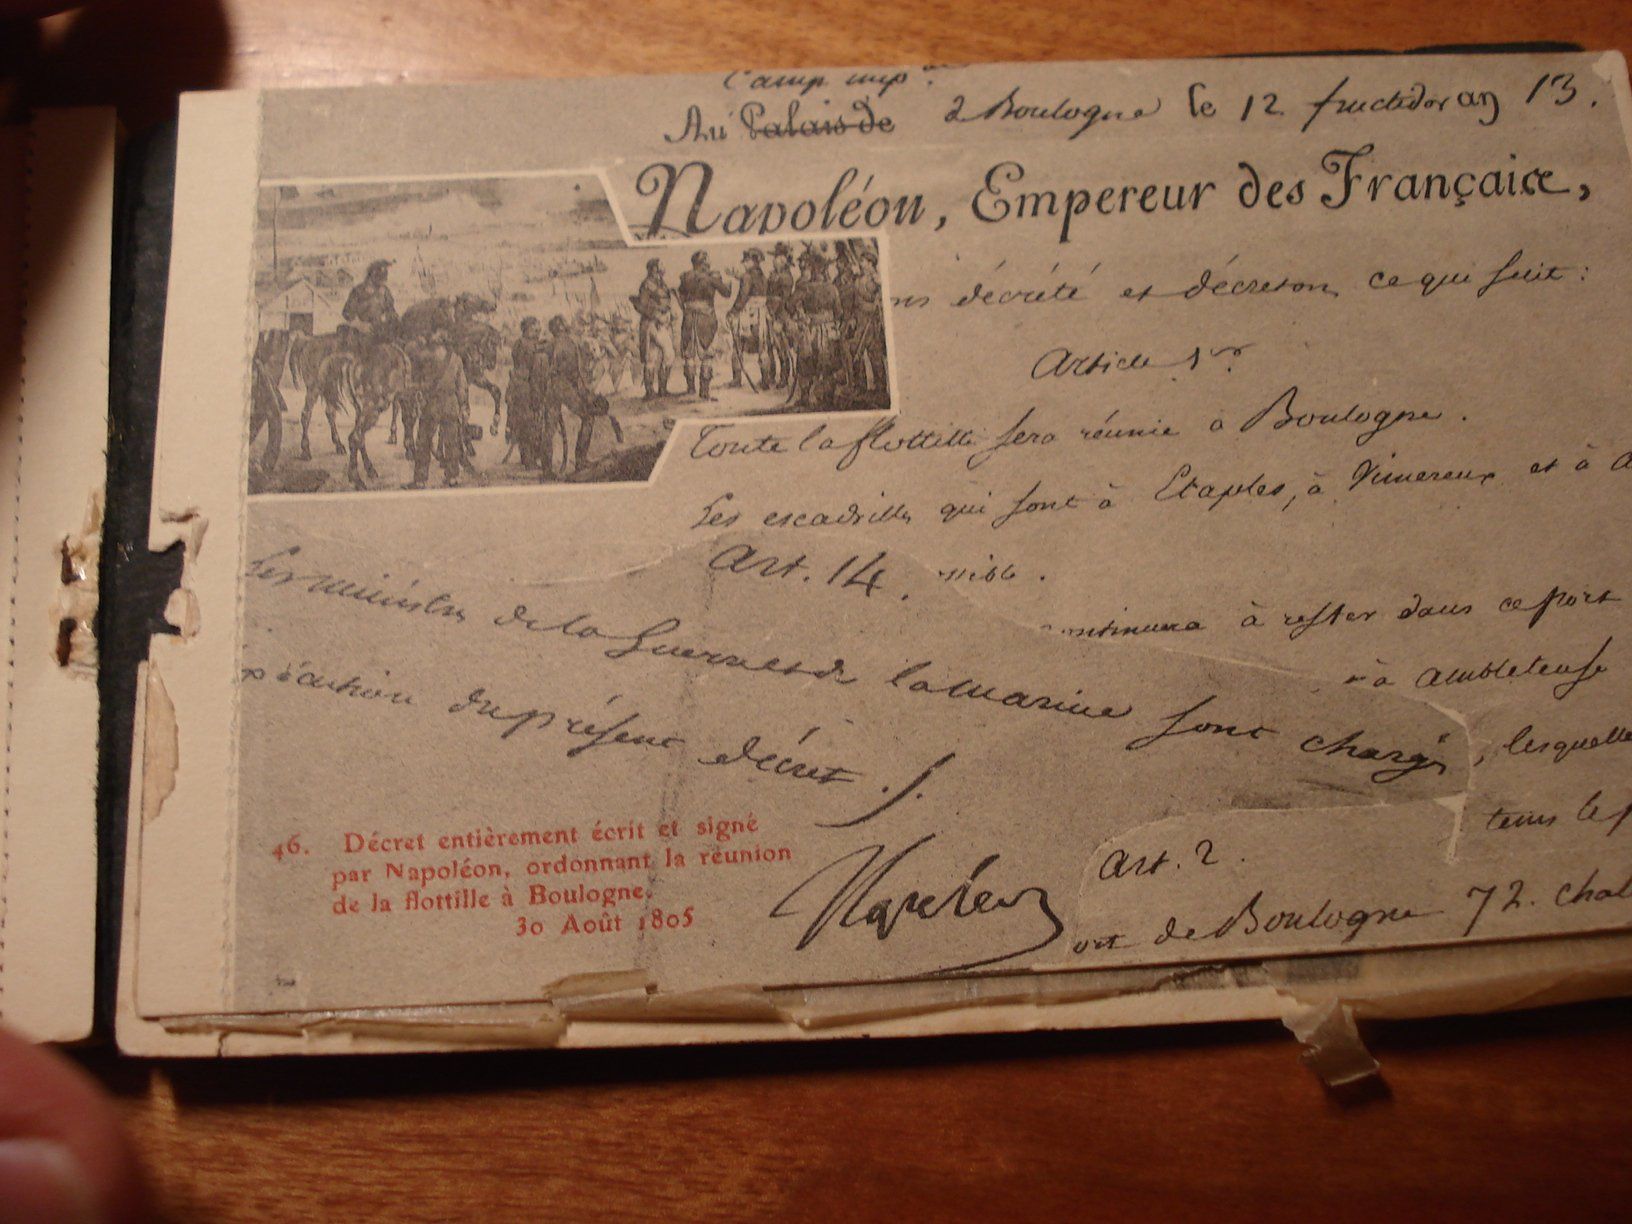 Camp imp.al
Au Palais de à Boulogne le 12 fructidor an 13.
Napoléon, Empereur des Français,
ns décrété et décretons ce qui suit :
Article 1er
Toute la flottille sera réunie à Boulogne.
Les escadrilles qui sont à Etaples, à Vimereux et à
Art. 14. ssible.
continuera à rester dans ce port
Les ministres de la Guerre et de la marine sont chargés
à Ambleteuse
, lesquelle
xécution du présent décret.
tems le
46. Décret entièrement écrit et signé
par Napoléon, ordonnant la réunion
de la flottille à Boulogne.
30 Août 1805
Napoléon
Art. 2.
ort de Boulogne 72. chal